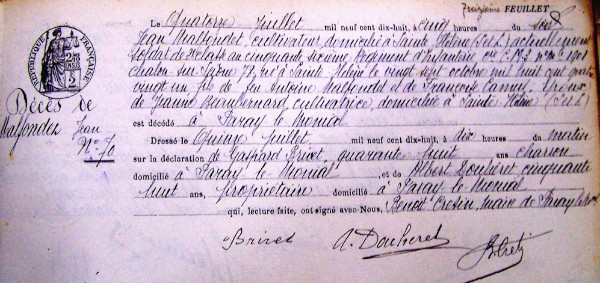 Treizième FEUILLET
Le Quatorze Juillet mil neuf cent dix-huit, à cinq heures du soir
Jean Malfondet, cultivateur domicilié à Sainte Hélène (S et L) actuellement
soldat de au cinquante sixième Régiment d'Infanterie
chalon sur Saône né à Sainte Hélène le vingt sept octobre mil huit cent quatre
vingt un fils de feu Antoine Malfondet et de Françoise Époux
de Jeanne cultivatrice, domiciliée à Sainte Hélène (S et L)
est décédé à Paray le Monial
Dressé le Quinze juillet mil neuf cent dix-huit, à dix heures du matin
sur la déclaration de Gaspard Brivet, quarante huit ans charron
domicilié à Paray le Monial et de Albert cinquante
huit ans, propriétaire domicilié à Paray le Monial
qui, lecture faite, ont signé avec Nous, Benoît maire de Paray le
Brivet A.
RÉPUBLIQUE FRANÇAISE
Décès de
Jean
N° 70